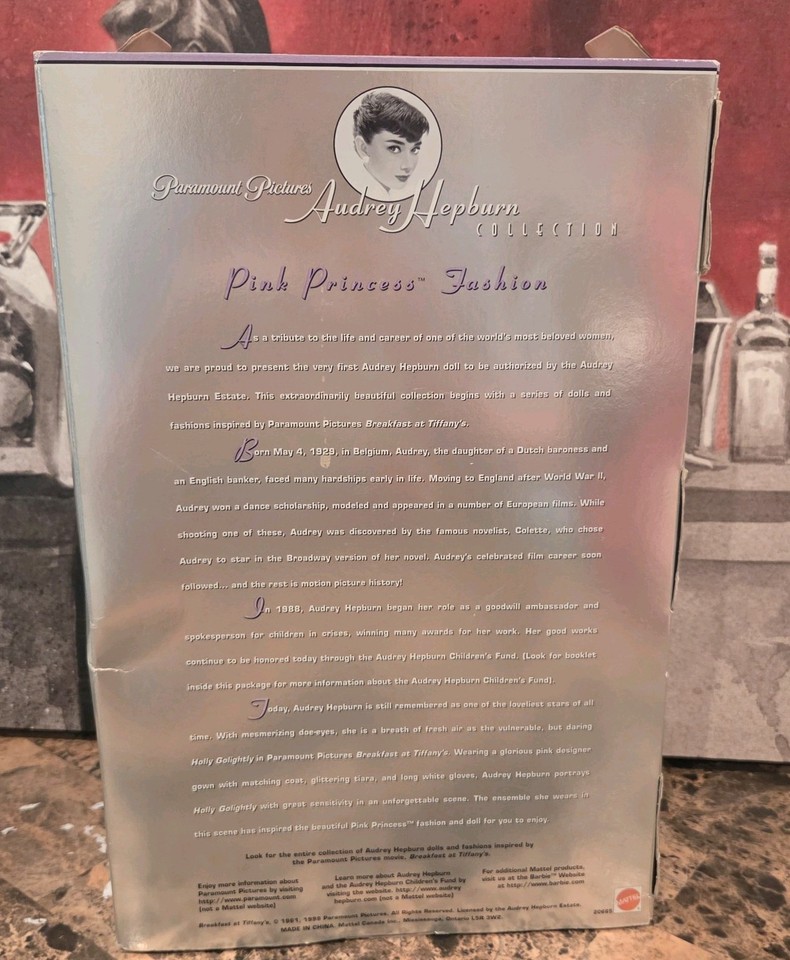 Paramount Pictures
Audrey Hepburn
COLLECTION
Pink Princess™ Fashion
As a tribute to the life and career of one of the world's most beloved women,
we are proud to present the very first Audrey Hepburn doll to be authorized by the Audrey
Hepburn Estate. This extraordinarily beautiful collection begins with a series of dolls and
fashions inspired by Paramount Pictures Breakfast at Tiffany's.
Born May 4, 1929, in Belgium, Audrey, the daughter of a Dutch baroness and
an English banker, faced many hardships early in life. Moving to England after World War II,
Audrey won a dance scholarship, modeled and appeared in a number of European films. While
shooting one of these, Audrey was discovered by the famous novelist, Colette, who chose
Audrey to star in the Broadway version of her novel. Audrey's celebrated film career soon
followed... and the rest is motion picture history!
In 1988, Audrey Hepburn began her role as a goodwill ambassador and
spokesperson for children in crises, winning many awards for her work. Her good works
continue to be honored today through the Audrey Hepburn Children's Fund. (Look for booklet
inside this package for more information about the Audrey Hepburn Children's Fund).
Today, Audrey Hepburn is still remembered as one of the loveliest stars of all
time. With mesmerizing doe-eyes, she is a breath of fresh air as the vulnerable, but daring
Holly Golightly in Paramount Pictures Breakfast at Tiffany's. Wearing a glorious pink designer
gown with matching coat, glittering tiara, and long white gloves, Audrey Hepburn portrays
Holly Golightly with great sensitivity in an unforgettable scene. The ensemble she wears in
this scene has inspired the beautiful Pink Princess™ fashion and doll for you to enjoy.
Look for the entire collection of Audrey Hepburn dolls and fashions inspired by
the Paramount Pictures movie, Breakfast at Tiffany's.
Enjoy more information about
Paramount Pictures by visiting
http://www.paramount.com
(not a Mattel website)
Learn more about Audrey Hepburn
and the Audrey Hepburn Children's Fund by
visiting the website. http://www.audrey
hepburn.com (not a Mattel website)
For additional Mattel products,
visit us at the Barbie™ Website
at http://www.barbie.com
Breakfast at Tiffany's, © 1961, 1998 Paramount Pictures. All Rights Reserved. Licensed by the Audrey Hepburn Estate.
MADE IN CHINA. Mattel Canada Inc., Mississauga, Ontario L5R 3W2.
MATTEL